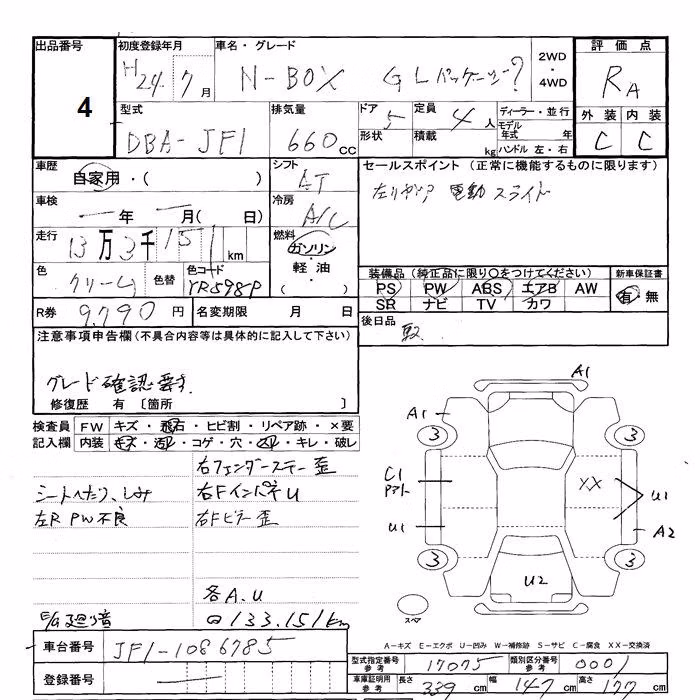 出品番号 初度登録年月 車名・グレード 2WD・4WD 評価点
4 H24. 7月 N-BOX GLパッケージ? RA
型式 排気量 ドア 5 定員 4人 ディーラー・並行 外装 内装
DBA-JF1 660cc 形状 積載 kg モデル年式 年 C C
ハンドル 左・右
車歴 シフト セールスポイント(正常に機能するものに限ります)
自家用・( ) AT 左リヤドア 電動スライド
車検 冷房
一年 一月( 日) A/C
走行 燃料
13万3千151km ガソリン・軽油・( )
色 色替 色コード 装備品(純正品に限り○をつけてください) 新車保証書
クリーム YR598P PS PW ABS エアB AW 有・無
SR ナビ TV カワ
R券 9,790円 名変期限 月 日 後日品
注意事項申告欄(不具合内容等は具体的に記入して下さい)
グレード確認要す.
修復歴 有〔箇所 〕
検査員 FW キズ・飛石・ヒビ割・リペア跡・×要
記入欄 内装 キズ・汚れ・コゲ・穴・スレ・キレ・破レ
右フェンダーステー歪
シートへたり、しみ 右Fインパネ U
左R PW不良 右Fピラー歪
各A.U
E/G廻り音 133,151km
A1
A1
3 3
C1 XX
U1
U1 A2
3 3
U2
スペア
A−キズ E−エクボ U−凹み W−補修跡 S−サビ C−腐食 XX−交換済
車台番号 JF1-1086785
登録番号
型式指定番号 参考 17075 類別区分番号 参考 0001
車庫証明用 参考 長さ 339cm 幅 147cm 高さ 177cm